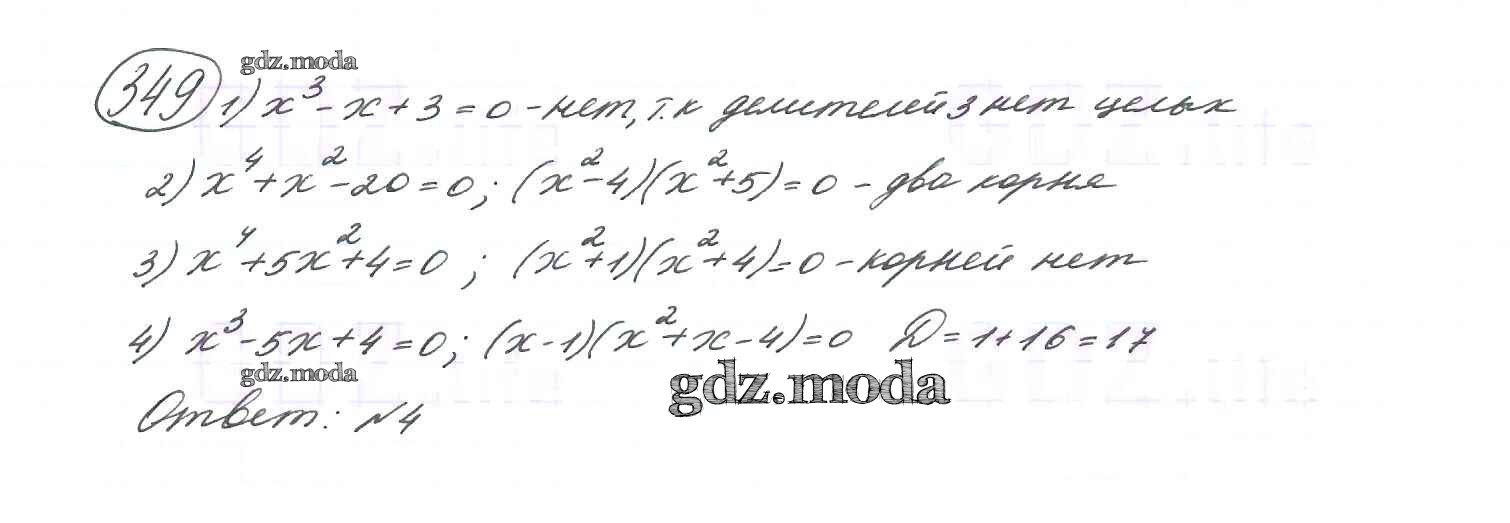 gdz.moda
349 1) x³ - x + 3 = 0 - нет, т.к делителей 3 нет целых
2) x⁴ + x² - 20 = 0; (x² - 4)(x² + 5) = 0 - два корня
3) x⁴ + 5x² + 4 = 0; (x² + 1)(x² + 4) = 0 - корней нет
4) x³ - 5x + 4 = 0; (x - 1)(x² + x - 4) = 0 D = 1 + 16 = 17
gdz.moda
gdz.moda
Ответ: №4